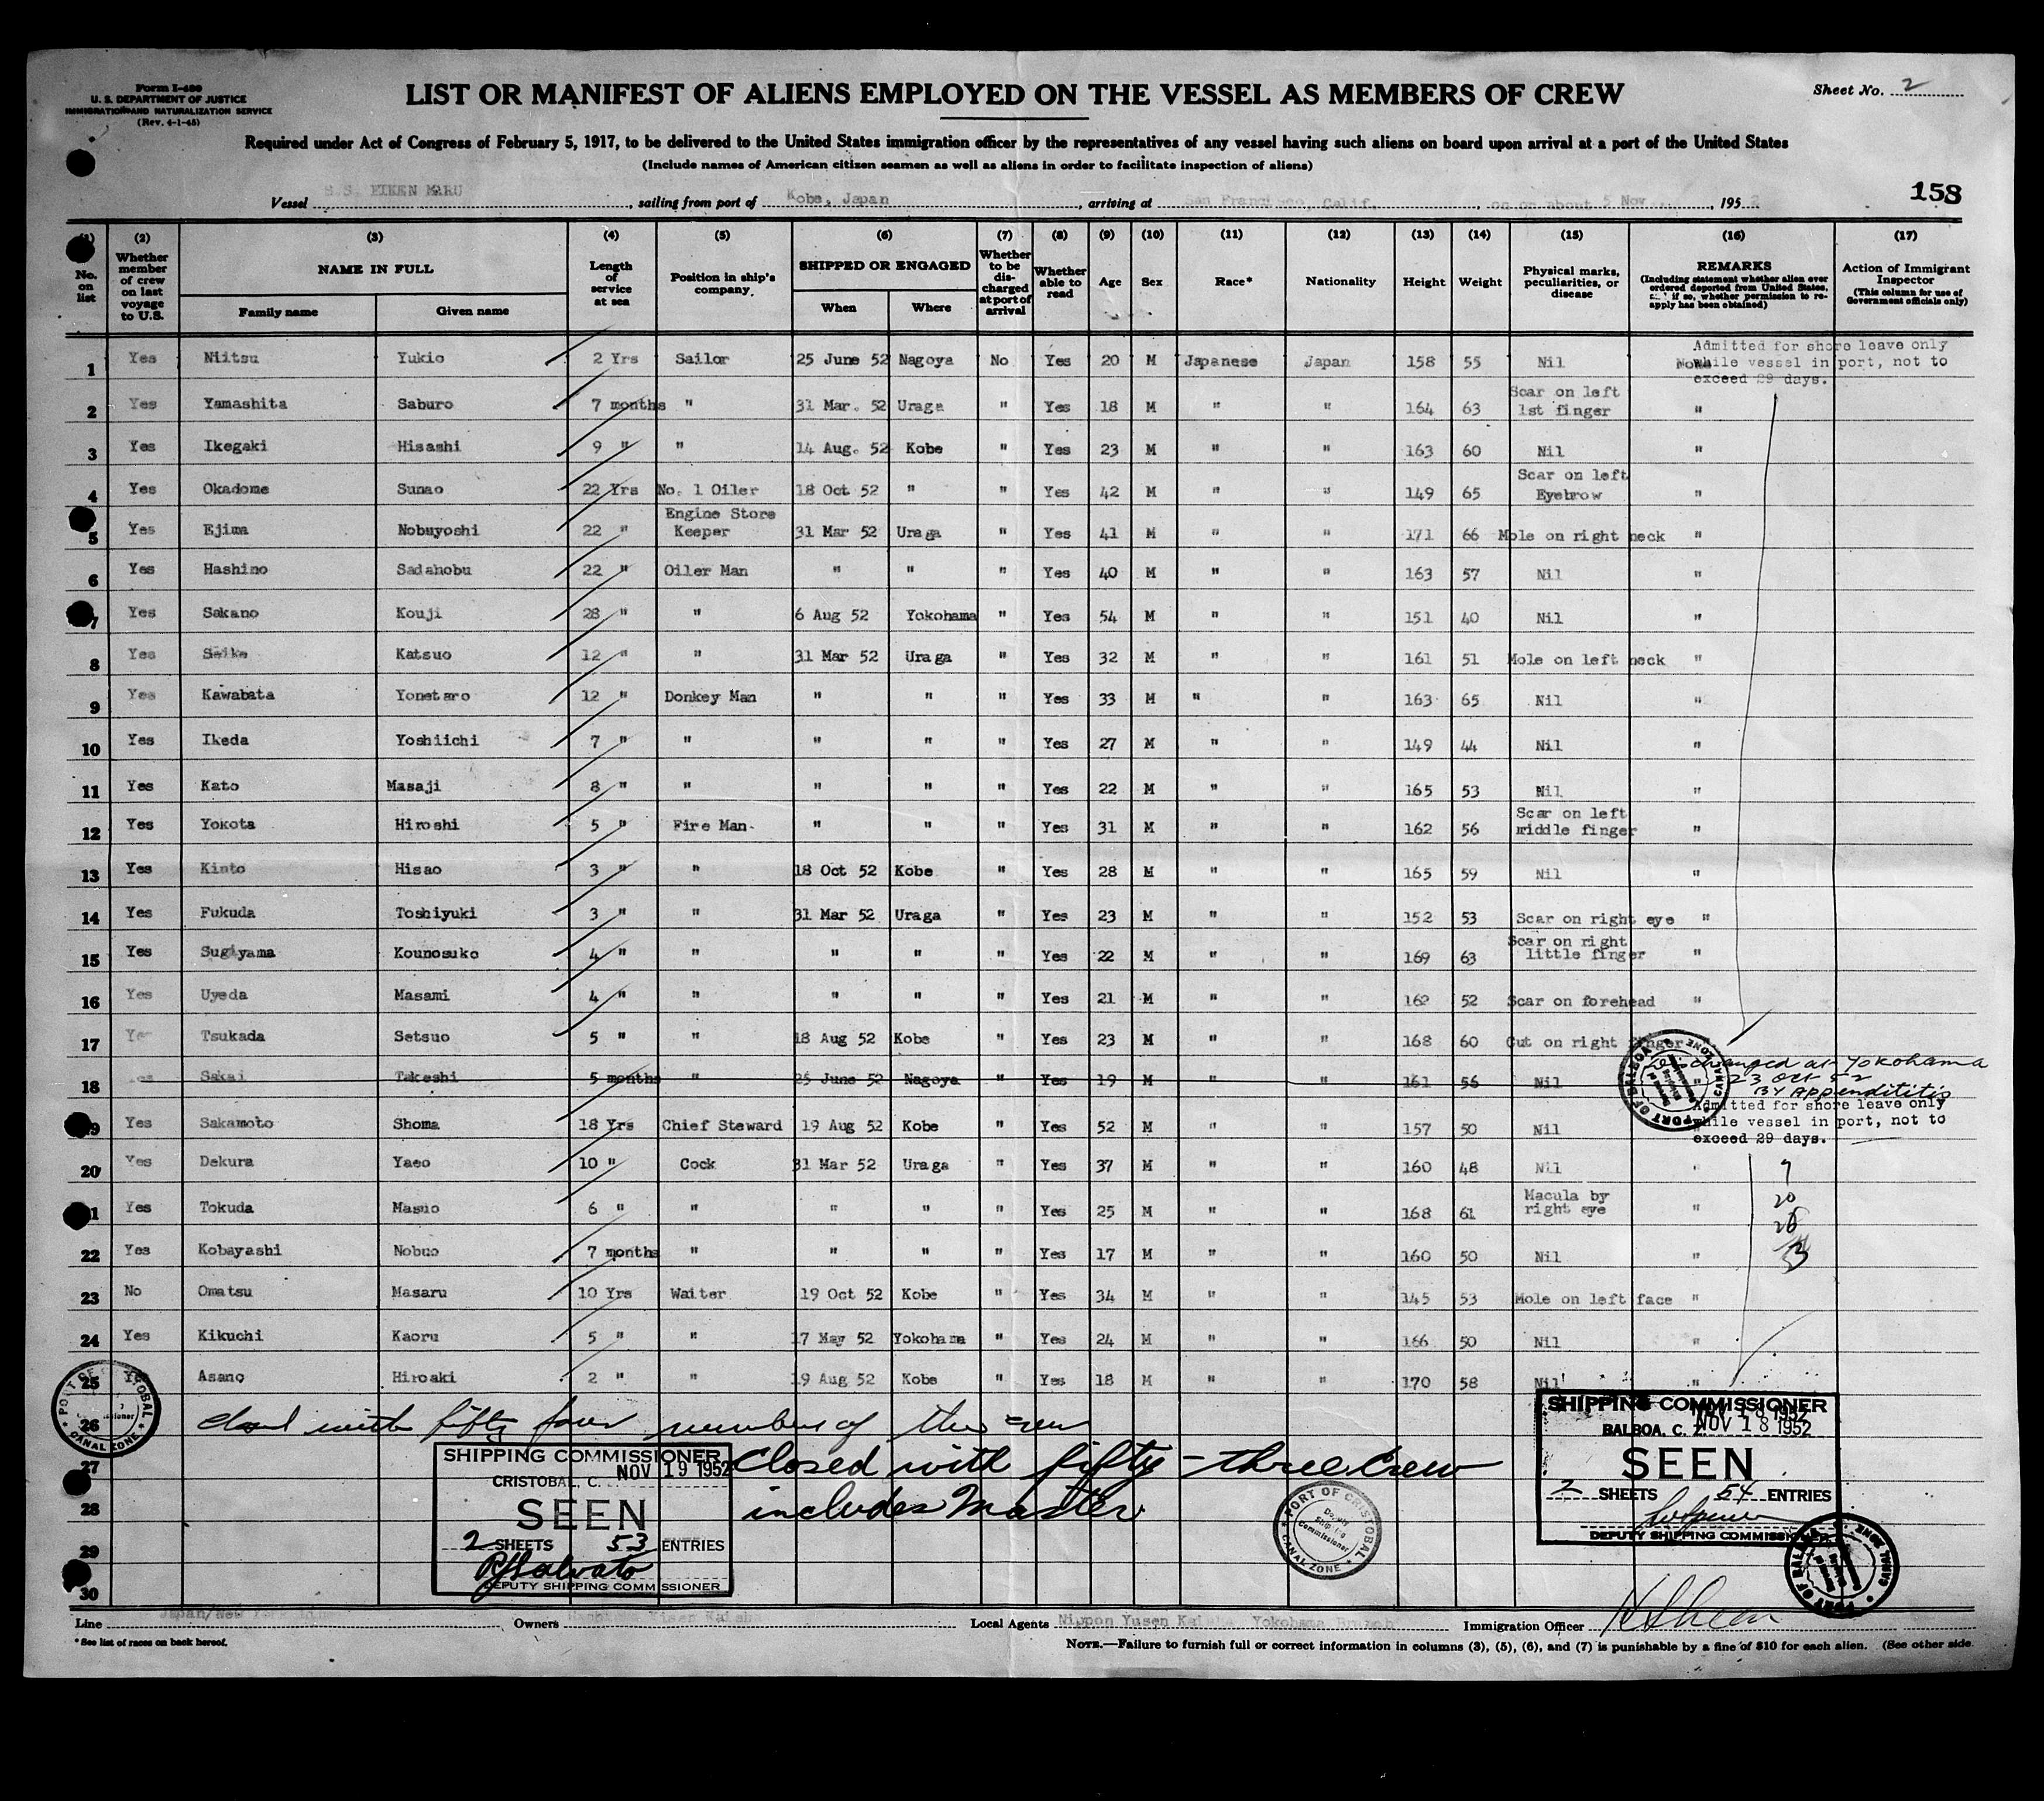 Form I-480
U. S. DEPARTMENT OF JUSTICE
IMMIGRATION AND NATURALIZATION SERVICE
(Rev. 4-1-45)
LIST OR MANIFEST OF ALIENS EMPLOYED ON THE VESSEL AS MEMBERS OF CREW
Sheet No. 2
Required under Act of Congress of February 5, 1917, to be delivered to the United States immigration officer by the representatives of any vessel having such aliens on board upon arrival at a port of the United States
(Include names of American citizen seamen as well as aliens in order to facilitate inspection of aliens)
Vessel S.S. EIKEN MARU, sailing from port of Kobe, Japan, arriving at San Francisco, Calif., on or about 5 Nov., 1952
158
(1) (2) (3) (4) (5) (6) (7) (8) (9) (10) (11) (12) (13) (14) (15) (16) (17)
No. on list
Whether member of crew on last voyage to U.S.
NAME IN FULL
Family name Given name
Length of service at sea
Position in ship's company
SHIPPED OR ENGAGED
When Where
Whether to be discharged at port of arrival
Whether able to read
Age
Sex
Race*
Nationality
Height
Weight
Physical marks, peculiarities, or disease
REMARKS
(Including statement whether alien ever ordered deported from United States, if so, whether permission to reapply has been obtained)
Action of Immigrant Inspector
(This column for use of Government officials only)
Admitted for shore leave only while vessel in port, not to exceed 29 days.
1 Yes Niitsu Yukio 2 Yrs Sailor 25 June 52 Nagoya No Yes 20 M Japanese Japan 158 55 Nil None
2 Yes Yamashita Saburo 7 months " 31 Mar. 52 Uraga " Yes 18 M " " 164 63 Scar on left 1st finger "
3 Yes Ikegaki Hisashi 9 " " 14 Aug. 52 Kobe " Yes 23 M " " 163 60 Nil "
4 Yes Okadome Sunao 22 Yrs No. 1 Oiler 18 Oct 52 " " Yes 42 M " " 149 65 Scar on left Eyebrow "
5 Yes Ejima Nobuyoshi 22 " Engine Store Keeper 31 Mar 52 Uraga " Yes 41 M " " 171 66 Mole on right neck "
6 Yes Hashino Sadahobu 22 " Oiler Man " " " Yes 40 M " " 163 57 Nil "
7 Yes Sakano Kouji 28 " " 6 Aug 52 Yokohama " Yes 54 M " " 151 40 Nil "
8 Yes Seike Katsuo 12 " " 31 Mar 52 Uraga " Yes 32 M " " 161 51 Mole on left neck "
9 Yes Kawabata Yonetaro 12 " Donkey Man " " " Yes 33 M " " 163 65 Nil "
10 Yes Ikeda Yoshiichi 7 " " " " " Yes 27 M " " 149 44 Nil "
11 Yes Kato Masaji 8 " " " " " Yes 22 M " " 165 53 Nil "
12 Yes Yokota Hiroshi 5 " Fire Man " " " Yes 31 M " " 162 56 Scar on left middle finger "
13 Yes Kinto Hisao 3 " " 18 Oct 52 Kobe " Yes 28 M " " 165 59 Nil "
14 Yes Fukuda Toshiyuki 3 " " 31 Mar 52 Uraga " Yes 23 M " " 152 53 Scar on right eye "
15 Yes Sugiyama Kounosuko 4 " " " " " Yes 22 M " " 169 63 Scar on right little finger "
16 Yes Uyeda Masami 4 " " " " " Yes 21 M " " 162 52 Scar on forehead "
17 Yes Tsukada Setsuo 5 " " 18 Aug 52 Kobe " Yes 23 M " " 168 60 Cut on right finger
18 Yes Sakai Takeshi 5 months " 25 June 52 Nagoya " Yes 19 M " " 161 56 Nil "
Discharged at Yokohama
23 Oct 52
By Appendititis
Admitted for shore leave only while vessel in port, not to exceed 29 days.
19 Yes Sakamoto Shoma 18 Yrs Chief Steward 19 Aug 52 Kobe " Yes 52 M " " 157 50 Nil "
20 Yes Dekura Yaeo 10 " Cock 31 Mar 52 Uraga " Yes 37 M " " 160 48 Nil "
21 Yes Tokuda Masuo 6 " " " " " Yes 25 M " " 168 61 Macula by right eye "
22 Yes Kobayashi Nobuo 7 months " " " " Yes 17 M " " 160 50 Nil "
23 No Omatsu Masaru 10 Yrs Waiter 19 Oct 52 Kobe " Yes 34 M " " 145 53 Mole on left face "
24 Yes Kikuchi Kaoru 5 " " 17 May 52 Yokohama " Yes 24 M " " 166 50 Nil "
25 Yes Asano Hiroaki 2 " " 19 Aug 52 Kobe " Yes 18 M " " 170 58 Nil "
26 closed with fifty four members of the crew
27 Closed with fifty-three Crew
28 includes Master
29
30
PORT OF CRISTOBAL CANAL ZONE
SHIPPING COMMISSIONER
CRISTOBAL, C. NOV 19 1952
SEEN
2 SHEETS 53 ENTRIES
DEPUTY SHIPPING COMMISSIONER
PORT OF CRISTOBAL
Deputy Shipping Commissioner
CANAL ZONE
SHIPPING COMMISSIONER
NOV 18 1952
BALBOA, C. Z.
SEEN
2 SHEETS 54 ENTRIES
DEPUTY SHIPPING COMMISSIONER
PORT OF BALBOA CANAL ZONE
PORT OF BALBOA CANAL ZONE
Line Japan/New York Line Owners Kisen Kaisha Local Agents Nippon Yusen Kaisha Yokohama Branch Immigration Officer
* See list of races on back hereof.
NOTE.—Failure to furnish full or correct information in columns (3), (5), (6), and (7) is punishable by a fine of $10 for each alien. (See other side